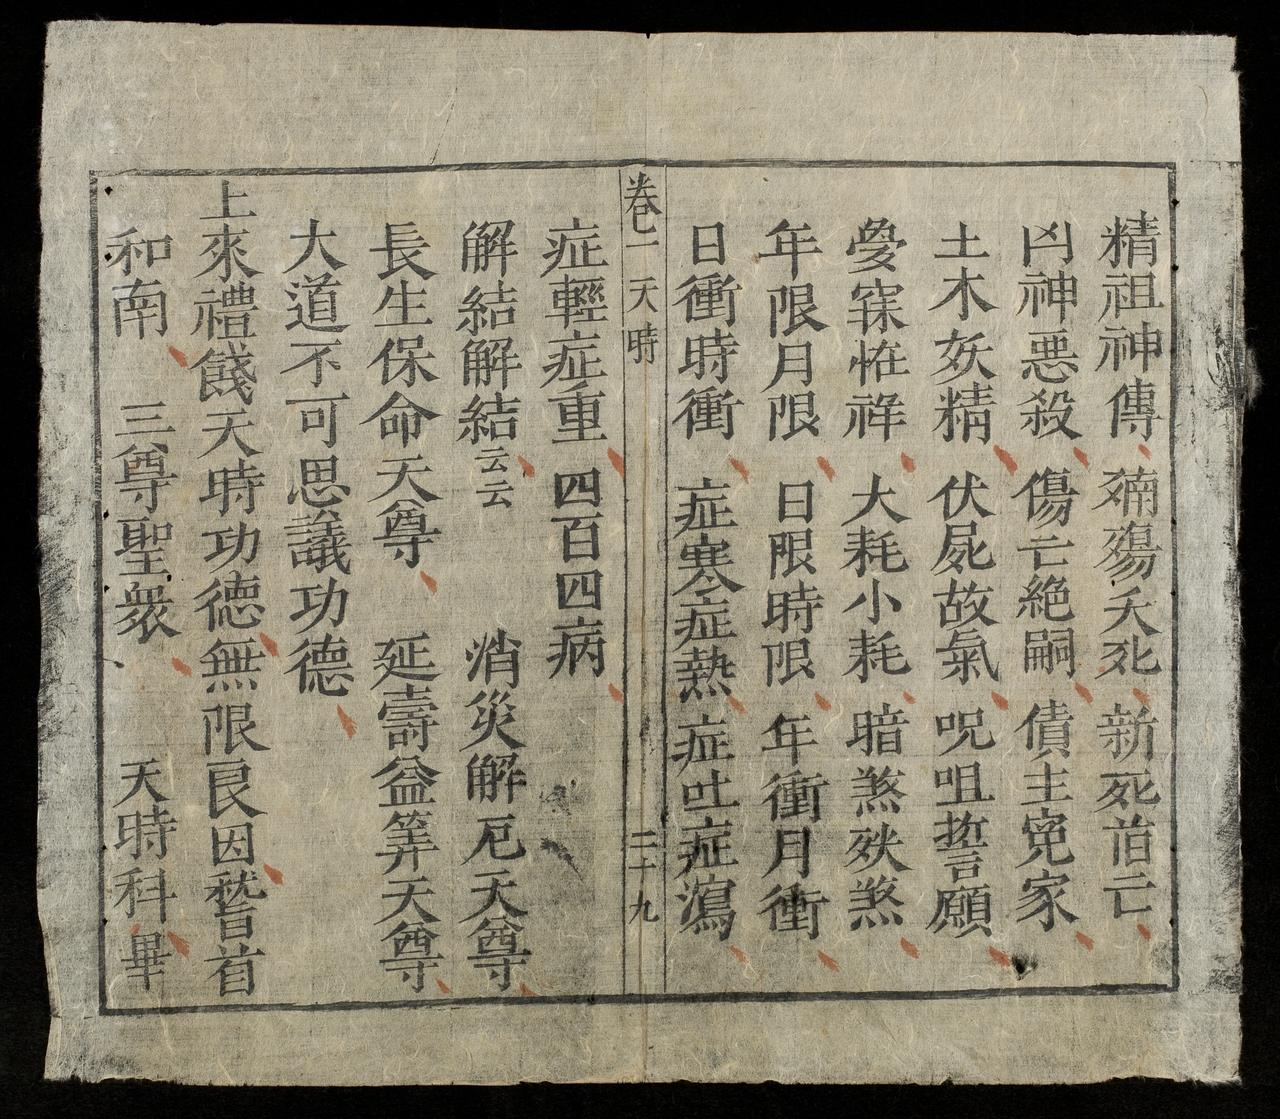 精祖神傳 㱥殤夭死 新死首亡
凶神惡殺 傷亡絕嗣 債主寃家
土木妖精 伏屍故氣 呪咀誓願
寐恠祥 大耗小耗 暗煞殃煞
年限月限 日限時限 年衝月衝
日衝時衝 症寒症熱 症吐症瀉
卷一 天時 二十九
症輕症重 四百四病
解結解結云云 消災解厄天尊
長生保命天尊 延壽益筭天尊
大道不可思議功德
上來禮餞天時功德無限良因嵆首
和南 三尊聖衆 天時科畢